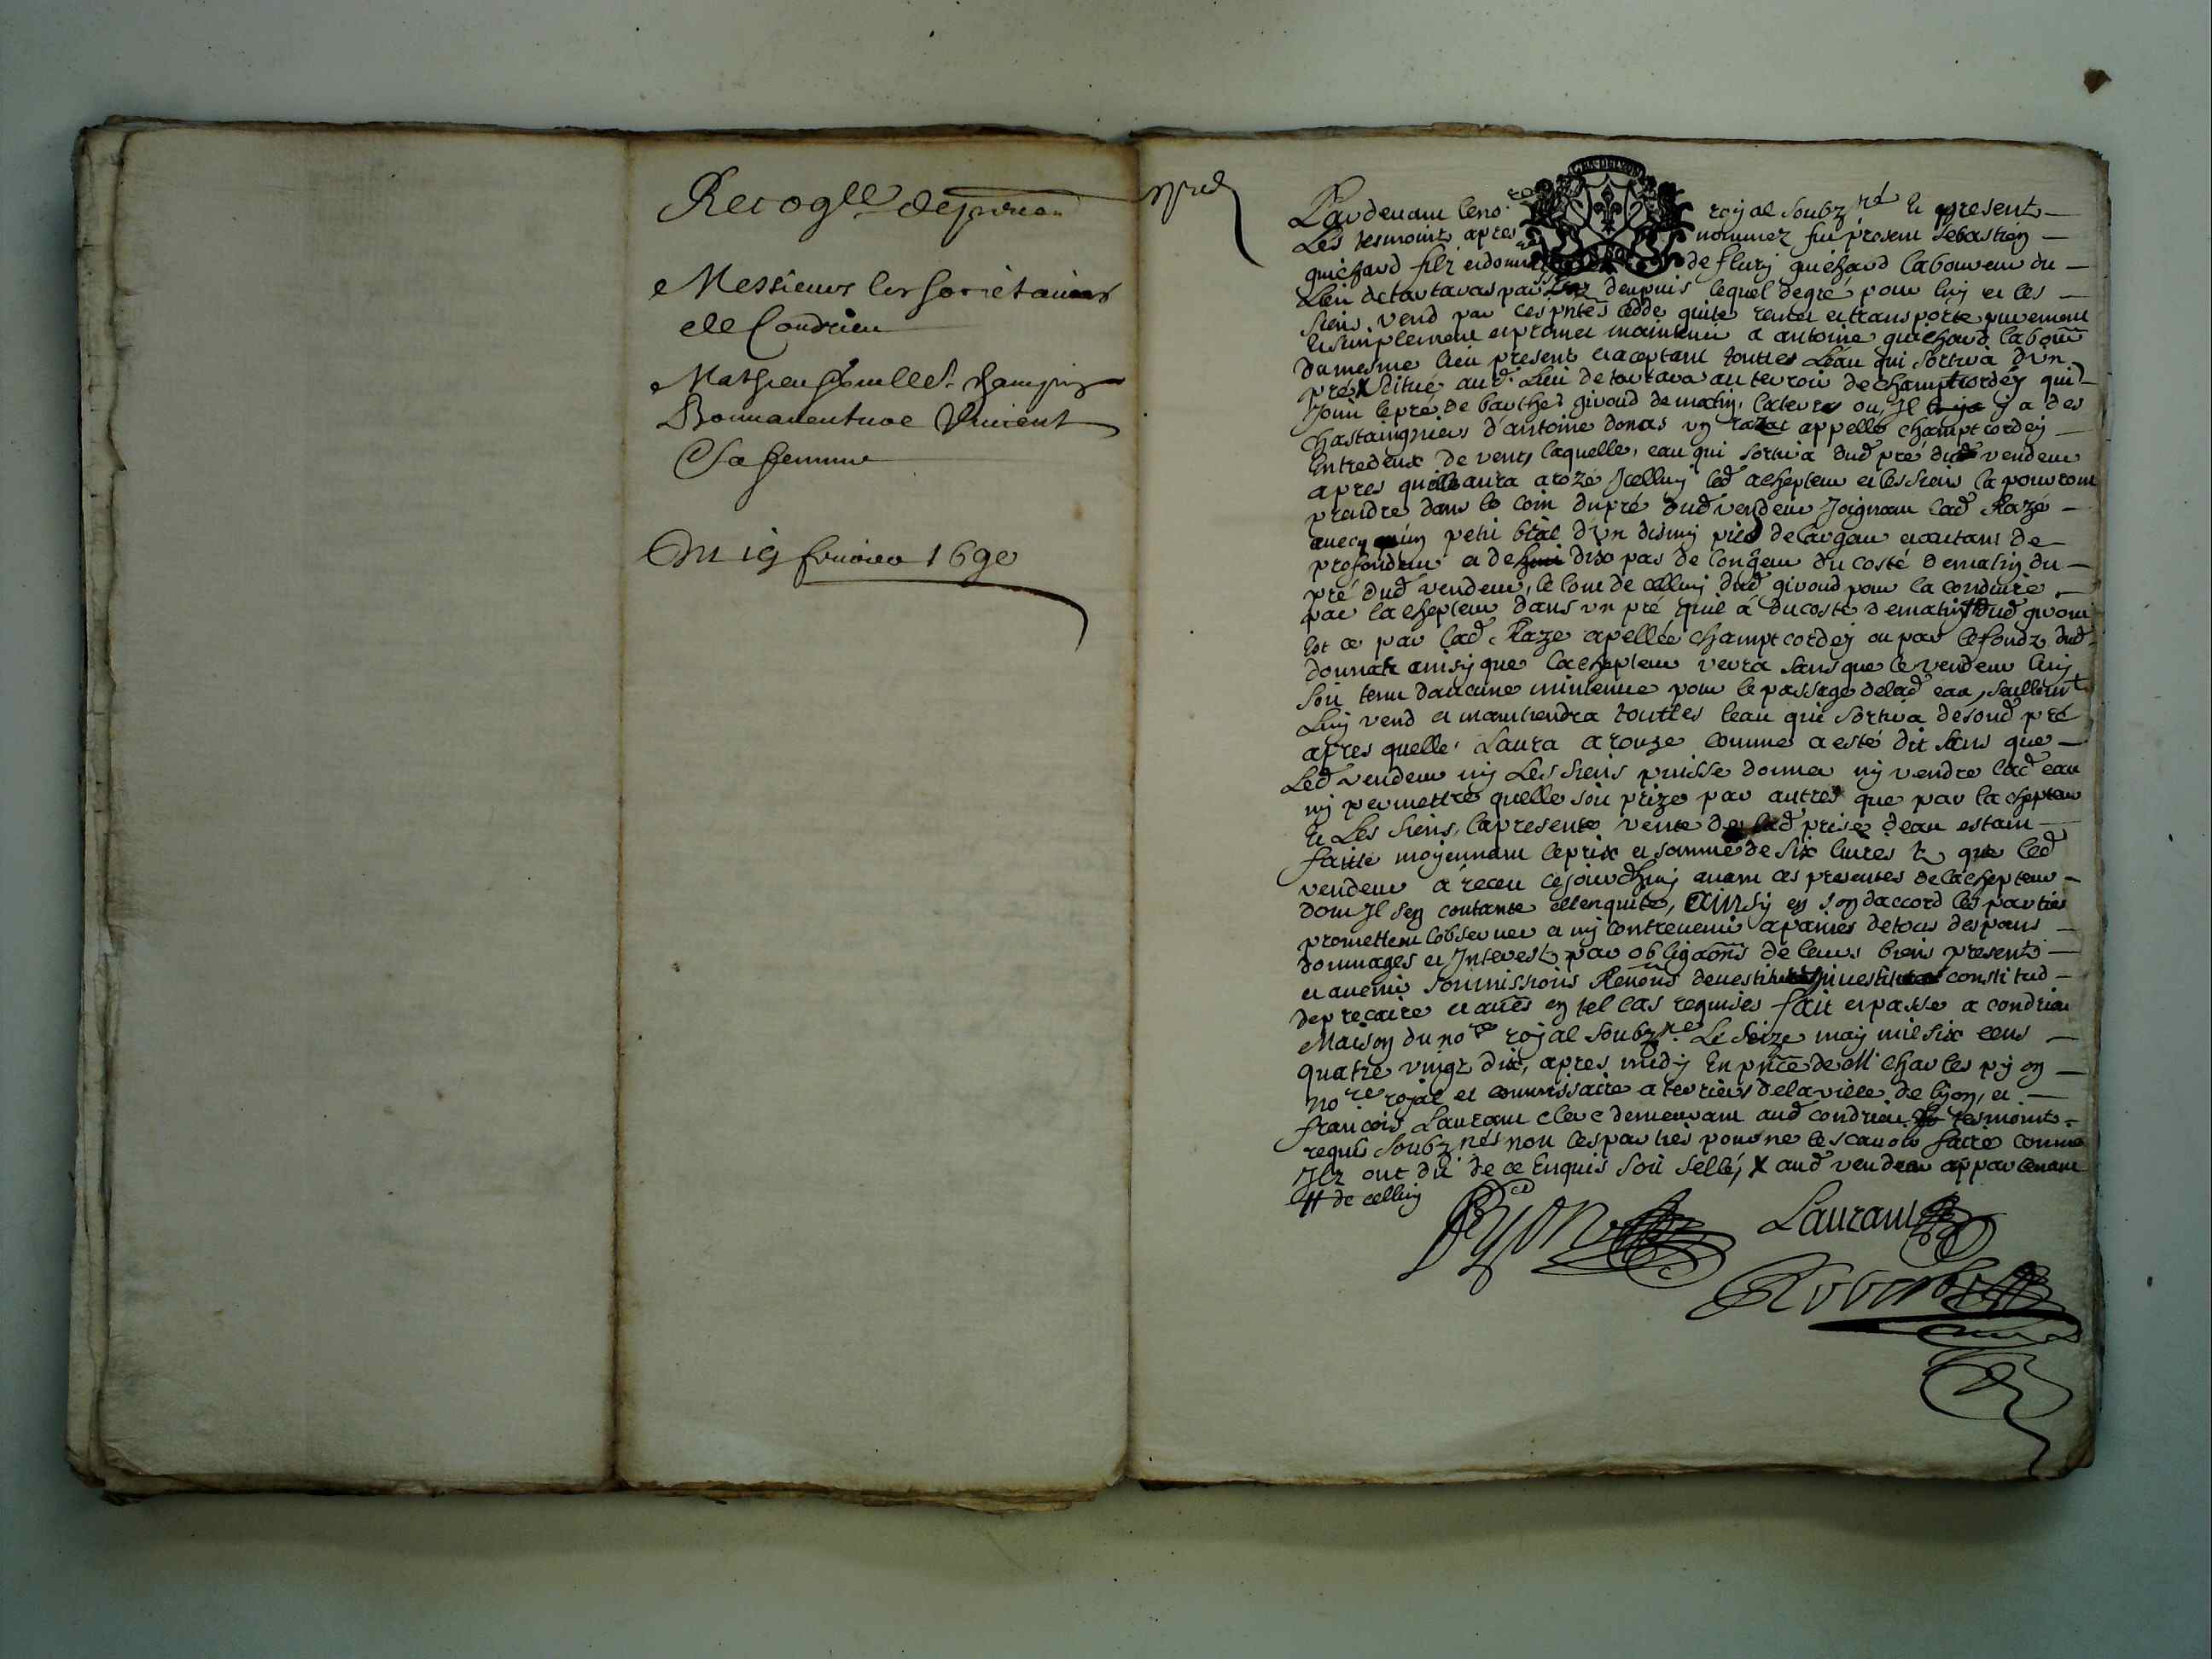 Recog^lle de
Messieurs les Societaires
de Condrieu
Mathieu
Bonnaventure Vincent
Sa femme
Du 19 1690
GEN. DE LYON
Pardeuant le no.^re royal soubz^né et present
Les tesmoints apres nommez fut present Sebastien
guichard filz de flury guichard laboureur du
Lieu de tartaras lequel de gré pour luy et les
siens vend par ces pntes cedde quite remet et transporte purement
et simplement et promet maintenir a antoine guichard labour
du mesme lieu present et aceptant touttes L'eau qui sortira d'un
pré X situé aud. Lieu de tartara au terroir de champt cordey qui
Joint le pré de barthe^d givoud de matin, la terre ou Il y a des
chastaingniers d'antoine donas un appellé champt cordey
Entredeux de vent, laquelle, eau qui sortira dud pré dud vendeur
apres quelle aura arozé Jcelluy led achepteur et les siens la pourront
prendre dans le coin du pré dud vendeur Joignant lad Raze
auecq un petit bial d'un demy pied de largeur et autant de
profondeur et de dix pas de longeur du costé de matin du
pré dud vendeur, le long de celluy dud givoud pour la conduire
par lachepteur dans un pré quil a du costé de matin # dud givoud
Et ce par lad. Raze apellée champt cordey ou par le fondz dud
donnat ainsy que lachepteur verra sans que le vendeur luy
soit tenu daucune mintenue pour le passage de lad eau, seullem^t
Luy vend et maintiendra touttes leau qui sortira de sond pré
apres quelle Laura arouze comme a esté dit sans que
Led vendeur ny Les siens puisse donner ny vendre lad eau
ny permettre quelle soit prize par autres que par lachepteur
Et Les siens, la presente vente de lad prise deau estant
faitte moyennant le prix et somme de six liures t^z que led
vendeur a receu cejourdhuy auant ces presentes de lachepteur
dont Il sen contante et len quite, Ainsy en sont daccord les parties
promettent l'observer et ny contreuenir a paines de tous despans
dommages et Jnterestz par obligaôns de leurs biens presents
et auenir soumissions Renons deuestitu inuestitu constitud
de precaire et au^es en tel cas requises fait et passé a condrieu
Maison du no^re royal soubz^né. Le seize may mil six cens
quatre vingt dix, apres midy En pnce de M^e Charles pyon
no^re royal et commissaire a terriers de la ville de lyon, et
françois Laurant clerc demeurant aud condrieu tesmoints
requis soubz^nés non les parties pour ne le scauoir faire comme
Ilz ont dit de ce Enquis soit sellé, X aud vendeur appartenant
# de celluy
Pyon
Laurant